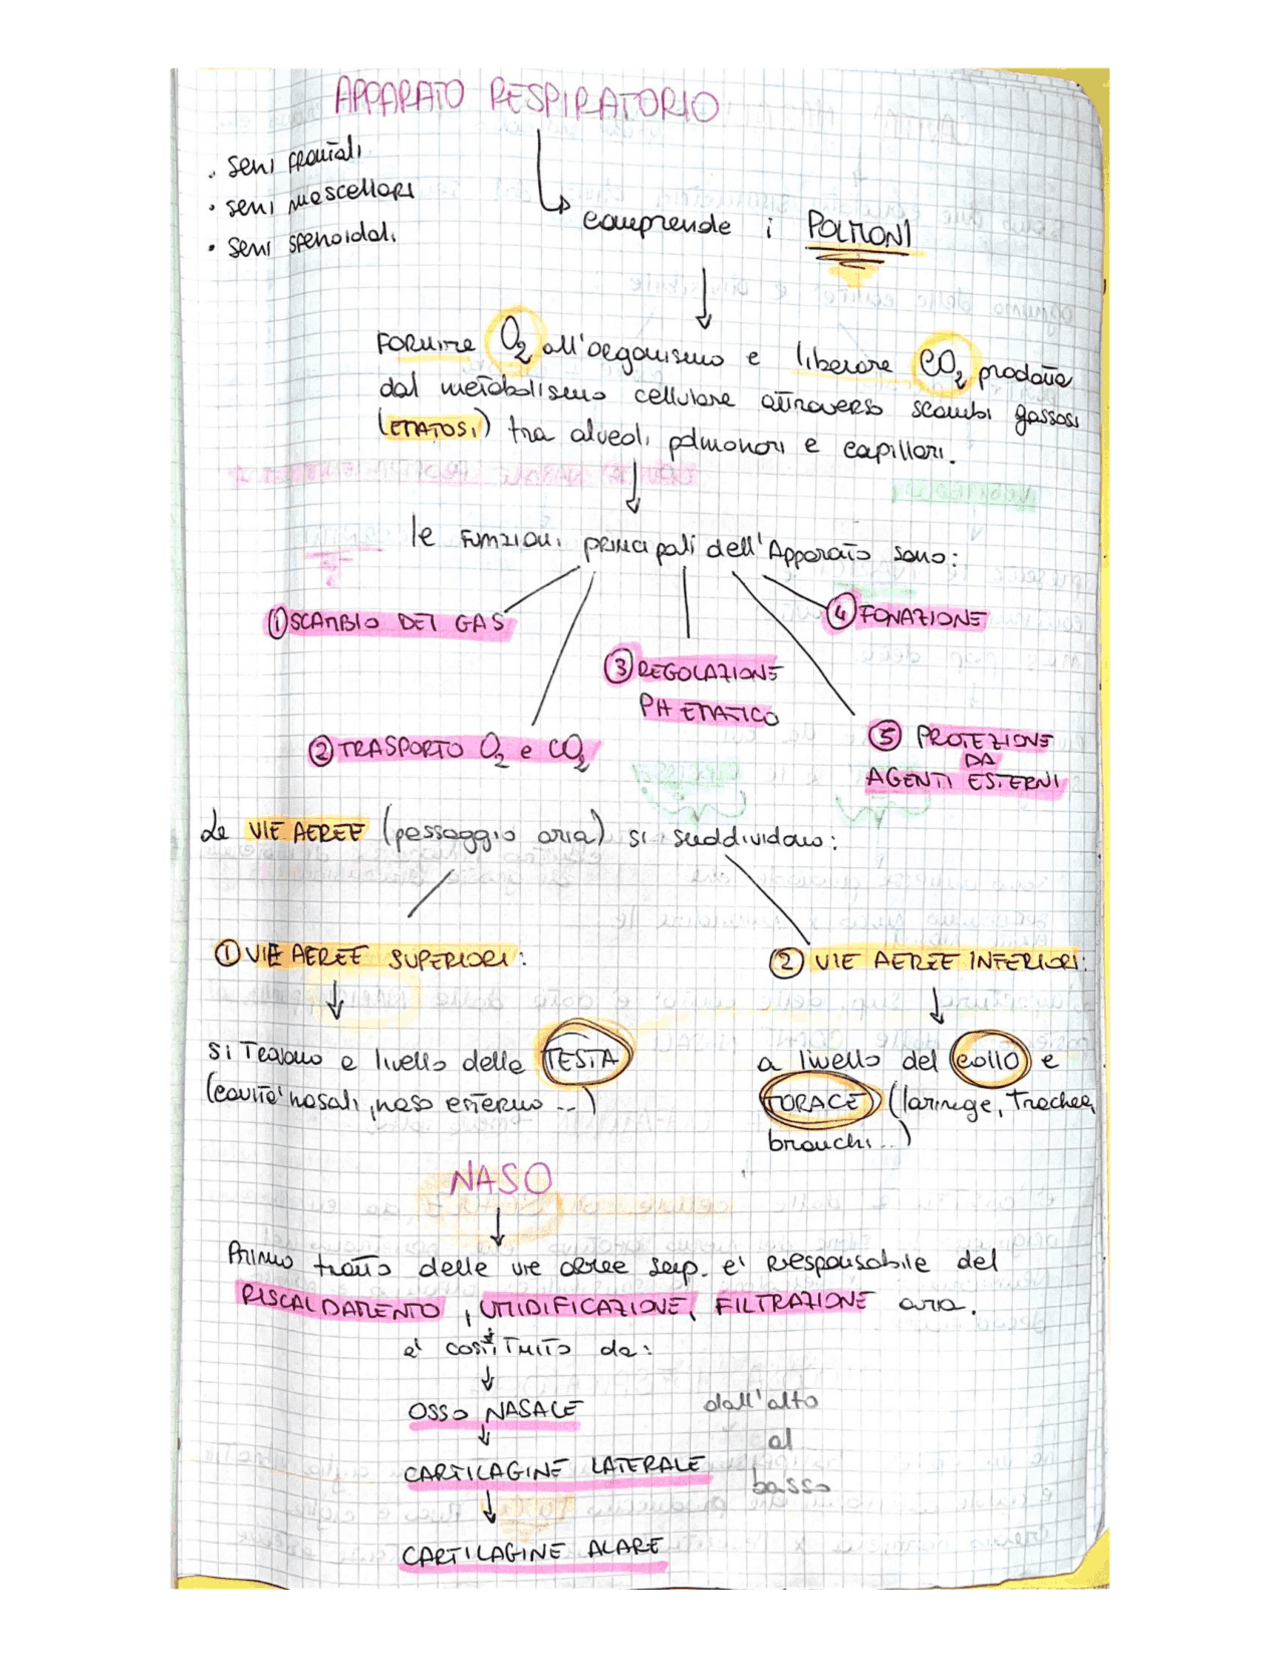 APPARATO RESPIRATORIO
• seni frontali
• seni mascellari
• seni sfenoidali
comprende i POLMONI
FORNIRE O₂ all'organismo e liberare CO₂ prodotta
dal metabolismo cellulare attraverso scambi gassosi
(EMATOSI) tra alveoli polmonari e capillari.
le funzioni principali dell'Apparato sono:
① SCAMBIO DEI GAS
④ FONAZIONE
③ REGOLAZIONE
PH EMATICO
② TRASPORTO O₂ e CO₂
⑤ PROTEZIONE
DA
AGENTI ESTERNI
Le VIE AEREE (passaggio aria) si suddividono:
① VIE AEREE SUPERIORI:
② VIE AEREE INFERIORI:
si trovano a livello della TESTA
(cavità nasali, naso esterno ..)
a livello del collo e
TORACE (laringe, trachea,
bronchi ..)
NASO
Primo tratto delle vie aeree sup. e' responsabile del
RISCALDAMENTO, UMIDIFICAZIONE, FILTRAZIONE aria.
e' costituito da:
OSSO NASALE
CARTILAGINE LATERALE
CARTILAGINE ALARE
dall'alto
al
basso